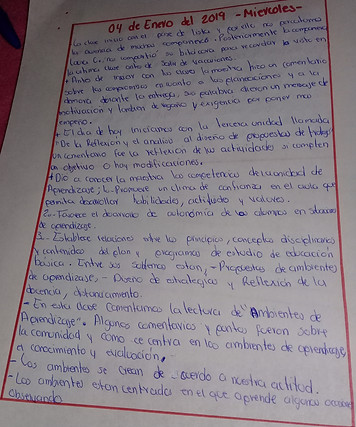 04 de Enero del 2019 - Miercoles -
La clase inicio con el pase de lista y por ello no
la ausencia de manera Posteriormente la compañera
Laura G. nos compartió su bitácora para recordar lo visto en
la última clase antes de salir de vacaciones.
• Antes de iniciar con la clase la maestra hizo un comentario
sobre los compromisos en cuanto a las planeaciones y a la
demora durante la entrega, sus palabras dieron un mensaje de
motivación y también de regaño y exigencia por poner más
empeño.
• El día de hoy iniciamos con la tercera unidad llamada
"De la Reflexión y el analisis al diseño de propuestas de trabajo
un comentario fue la reflexion de las actividades si cumplen
un objetivo o hay modificaciones.
• Dio a conocer la maestra las competencias de la unidad de
Aprendizaje; 1.- Promueve un clima de confianza en el aula que
permita desarrollar habilidades, actitudes y valores.
2.- Favorece el desarrollo de autonomía de los alumnos en
de aprendizaje.
3.- Establece relaciones entre los principios, conceptos disciplinarios
y contenidos del plan y programas de estudio de educación
básica. Entre sus saberes estan, - Propuestas de ambientes
de aprendizaje, - Diseño de estrategias y Reflexión de la
docencia, distanciamiento.
- En esta clase Comentamos la lectura de "Ambientes de
Aprendizaje". Algunos comentarios y puntos fueron sobre
la comunidad y como se centra en los ambientes de aprendizaje,
el conocimiento y evaluación,
- Los ambientes se crean de acuerdo a nuestra actitud.
- Los ambientes estan centrada en el que aprende algunas ocasiones
observando